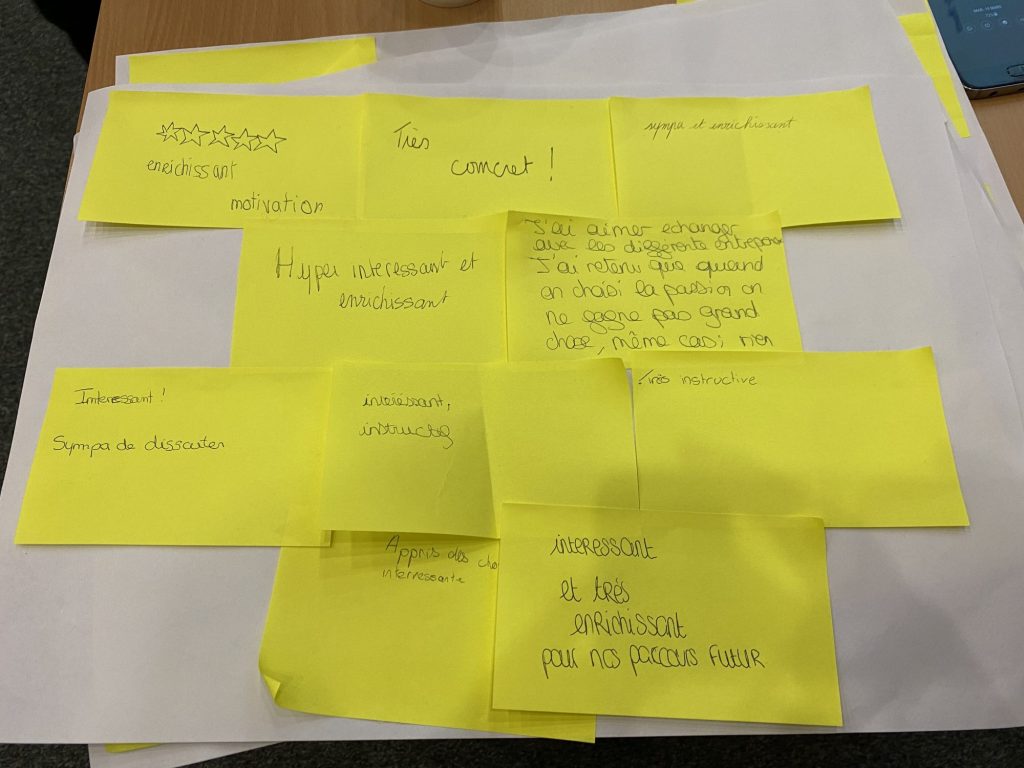 enrichissant
motivation
Très
comcret !
sympa et enrichissant
Hyper interessant et
enrichissant
J'ai aimer echanger
avec les différente entreprise
J'ai retenu que quand
on choisi la passion on
ne gagne pas grand
chose, même casi rien
Interessant !
Sympa de disscuter
interéssant,
instructif
Très instructive
Appris des cho
interressante
interessant
et trés
enRichissant
pour nos parcours futur